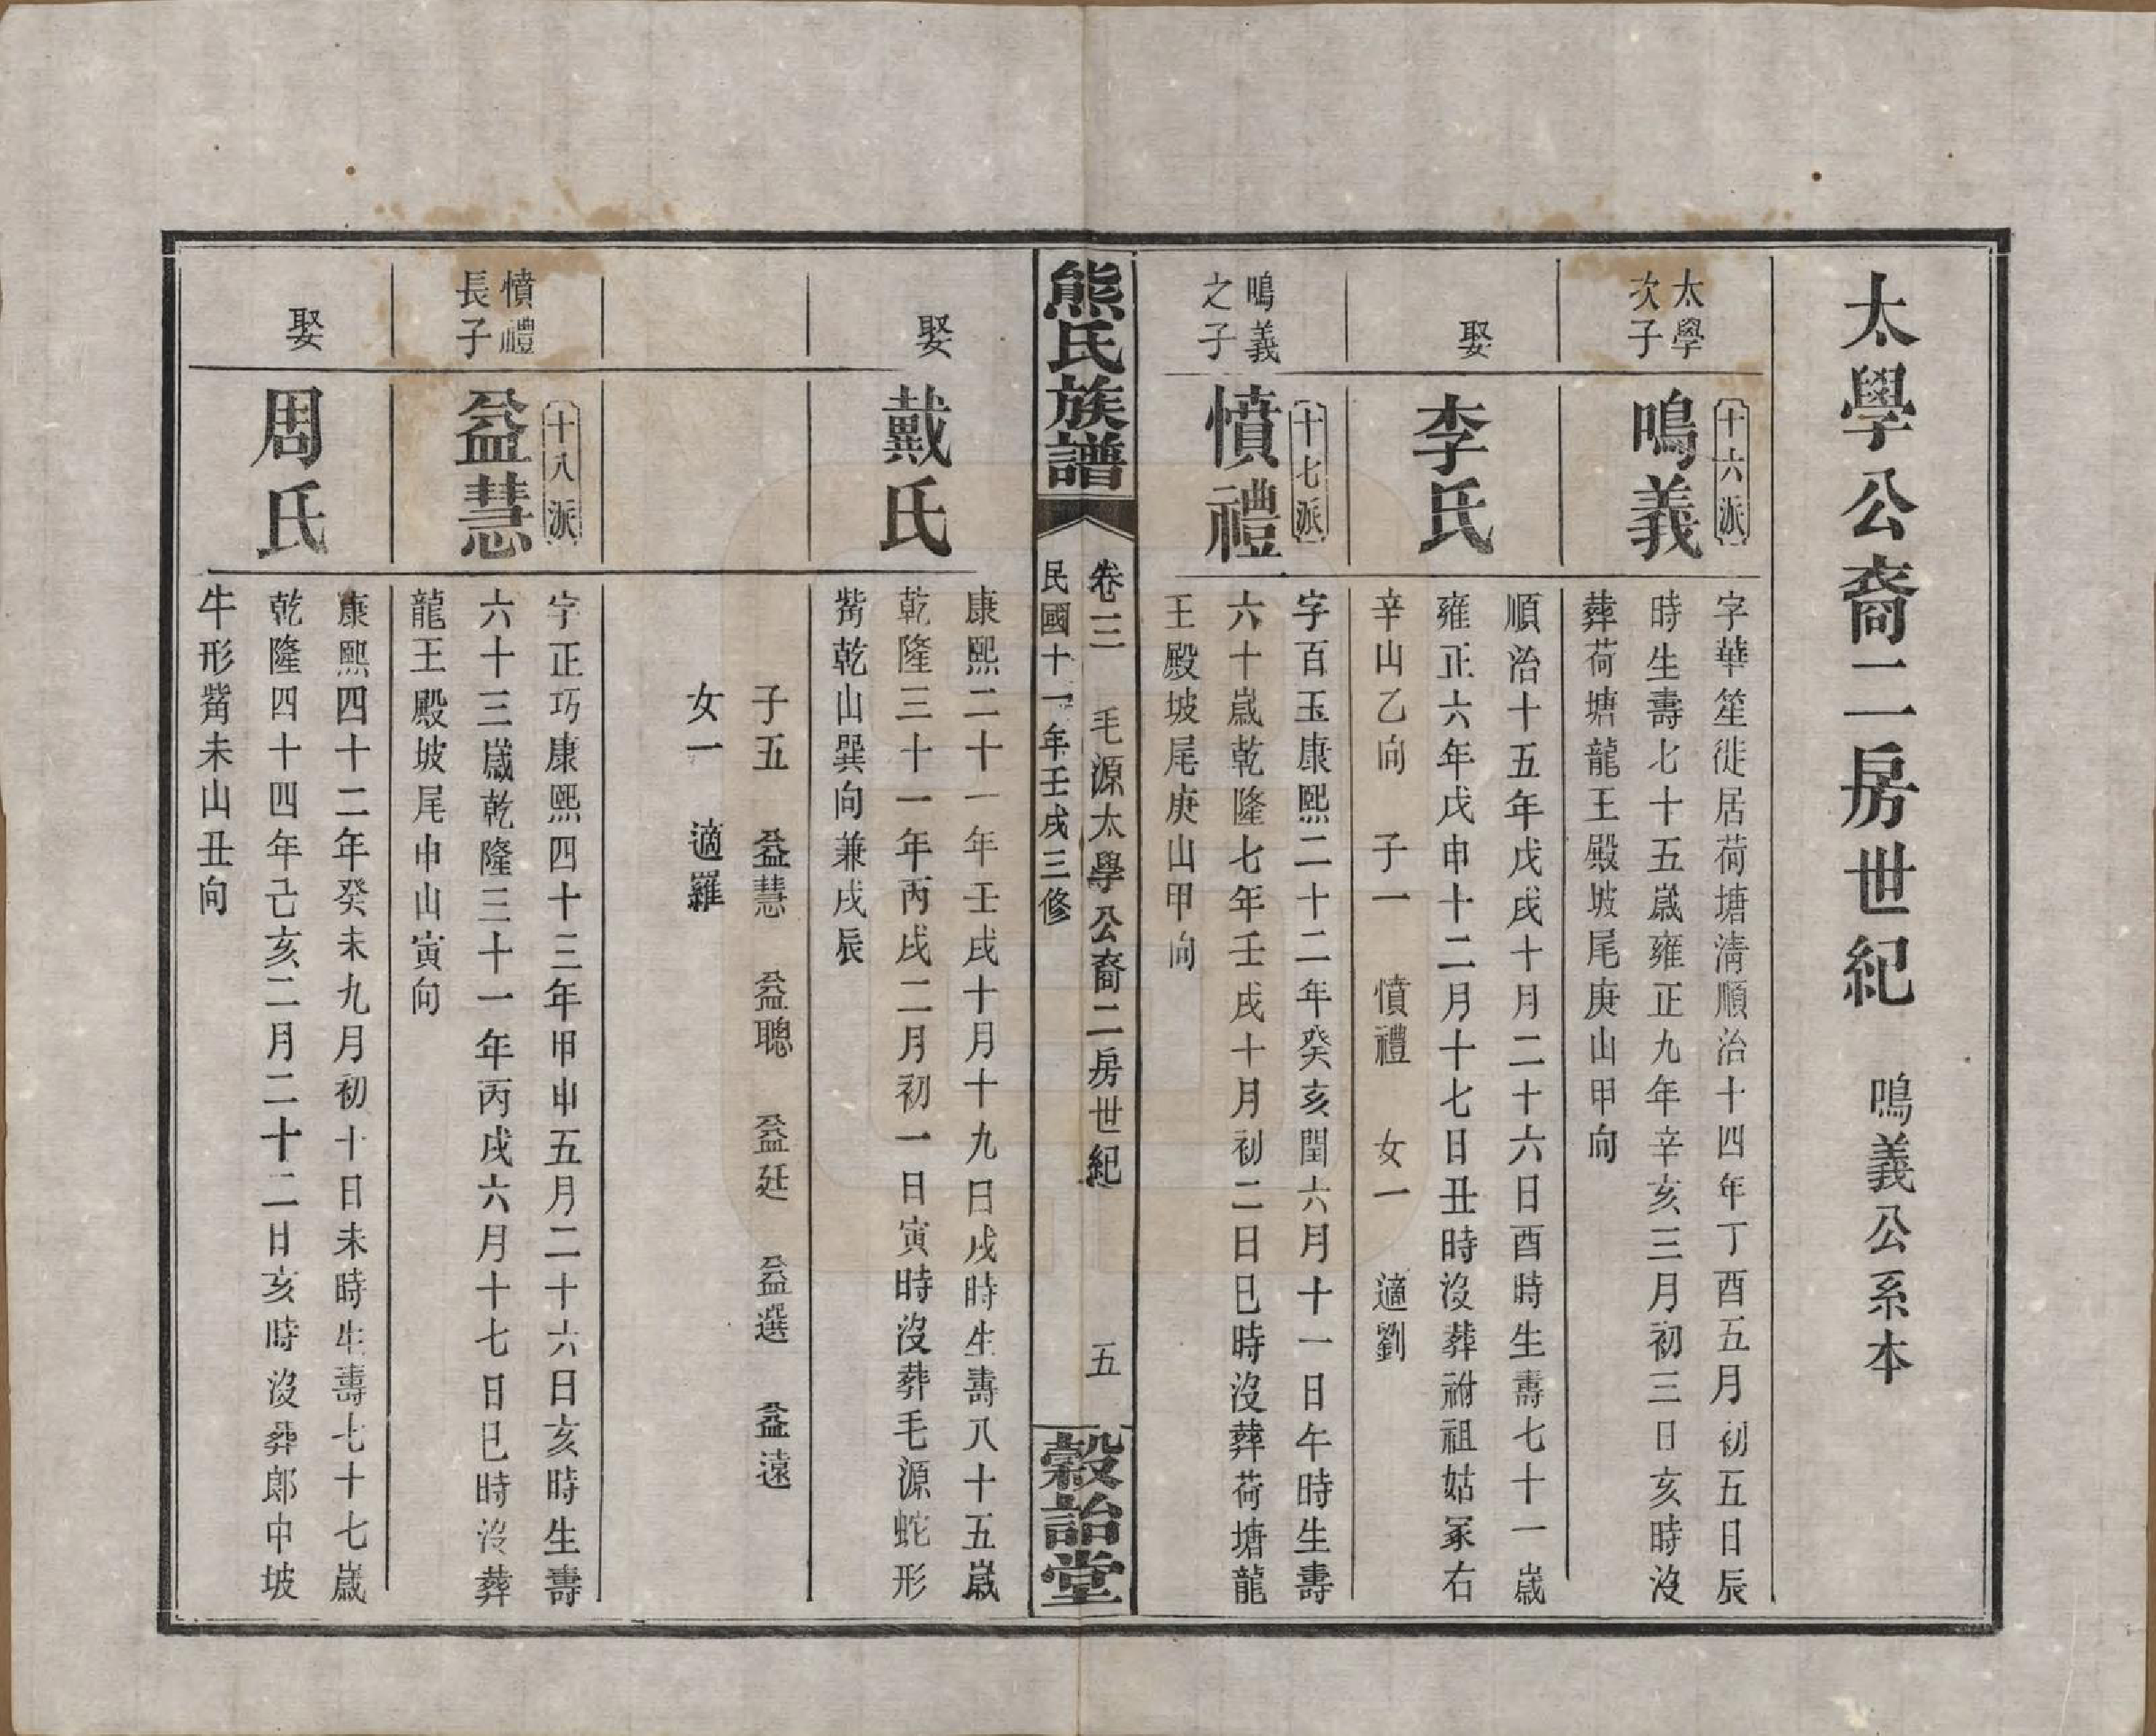 太學公裔二房世紀　鳴義公系本
太學
次子
十六派
鳴義
字華笙徙居荷塘淸順治十四年丁酉五月初五日辰
時生壽七十五歲雍正九年辛亥三月初三日亥時沒
葬荷塘龍王殿坡尾庚山甲向
娶
李氏
順治十五年戊戌十月二十六日酉時生壽七十一歲
雍正六年戊申十二月十七日丑時沒葬祔祖姑冢右
辛山乙向　子一　憤禮　女一　適劉
鳴義
之子
十七派
憤禮
字百玉康熙二十二年癸亥閏六月十一日午時生壽
六十歲乾隆七年壬戌十月初二日巳時沒葬荷塘龍
王殿坡尾庚山甲向
熊氏族譜
卷三　毛源太學公裔二房世紀　五
民國十一年壬戌三修
穀詒堂
娶
戴氏
康熙二十一年壬戌十月十九日戌時生壽八十五歲
乾隆三十一年丙戌二月初一日寅時沒葬毛源蛇形
觜乾山巽向兼戌辰
子五　益慧　益聰　益廷　益選　益遠
女一　適羅
憤禮
長子
十八派
益慧
字正巧康熙四十三年甲申五月二十六日亥時生壽
六十三歲乾隆三十一年丙戌六月十七日巳時沒葬
龍王殿坡尾申山寅向
娶
周氏
康熙四十二年癸未九月初十日未時生壽七十七歲
乾隆四十四年己亥二月二十二日亥時沒葬郎中坡
牛形觜未山丑向